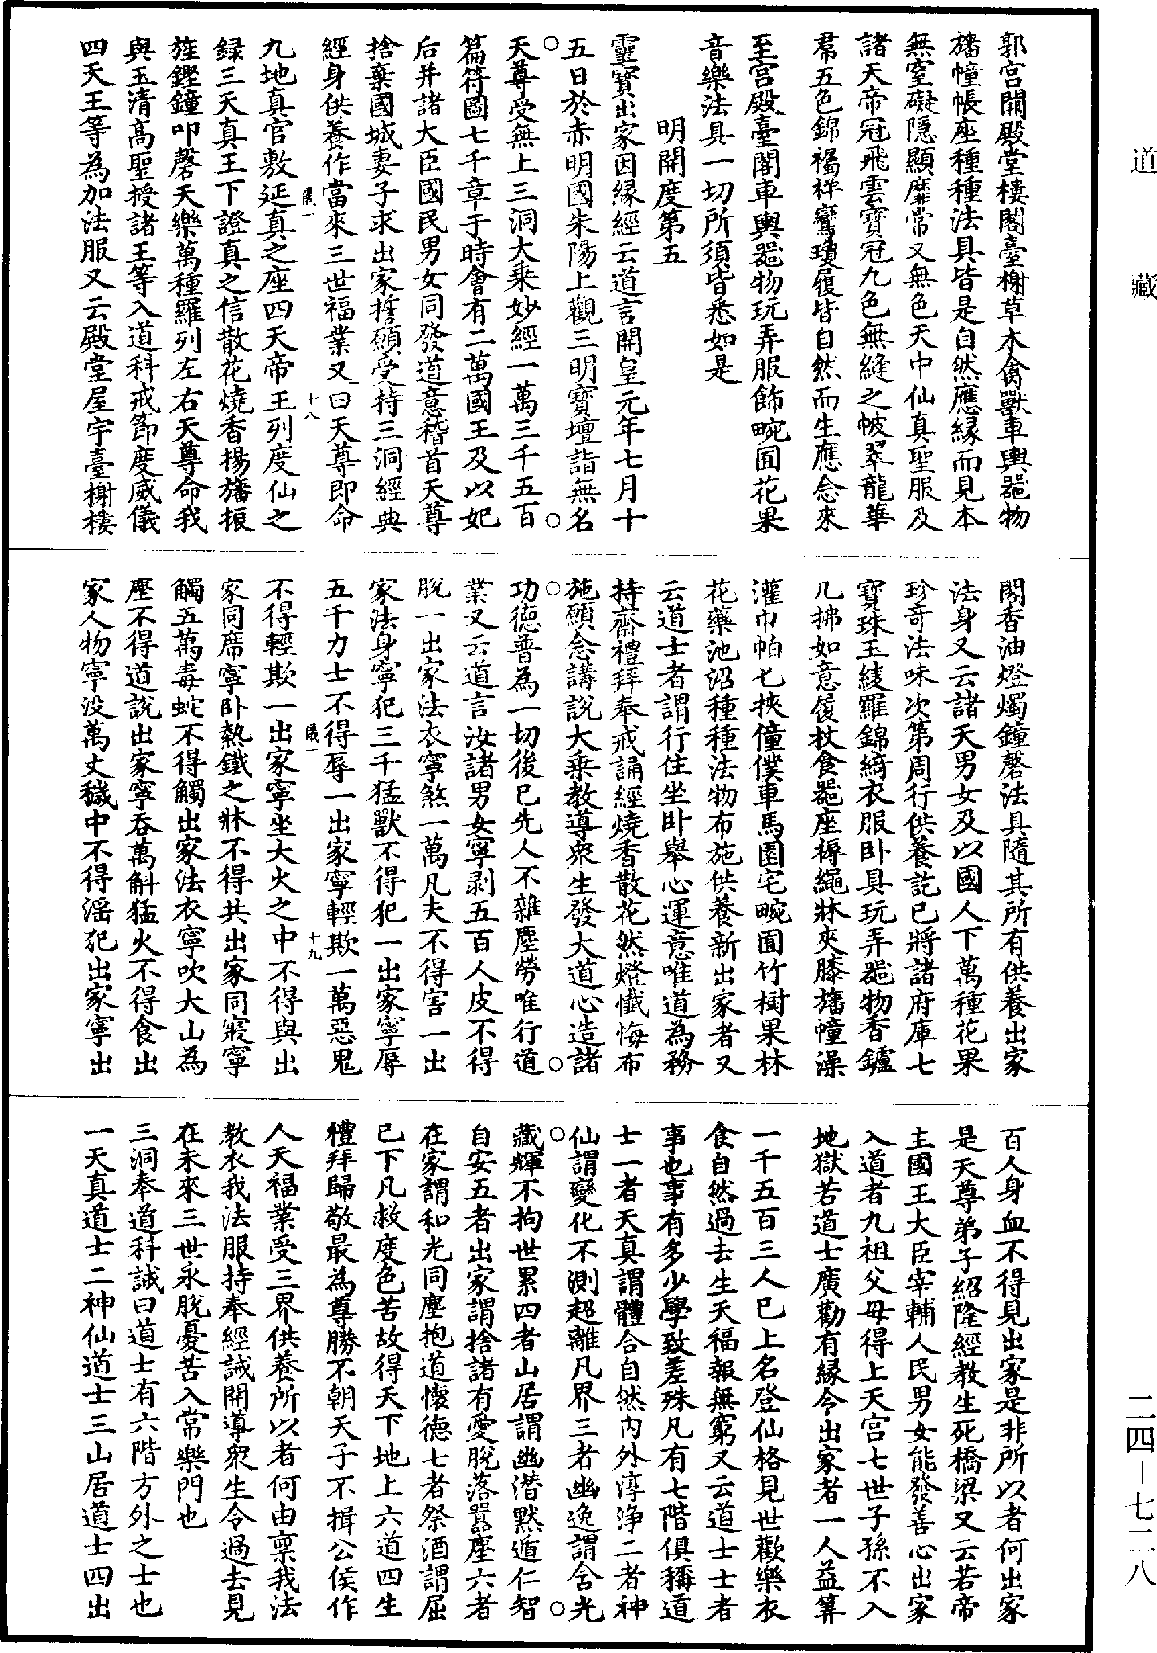 道藏
郭宫闕殿堂樓閣臺榭草木禽獸車輿器物
旛幢帳座種種法具皆是自然應緣而見本
無窒礙隱顯靡常又無色天中仙真聖服及
諸天帝冠飛雲寶冠九色無縫之帔翠龍華
帬五色錦褐袢鸞瓊履皆自然而生應念來
至宫殿臺閣車輿器物玩弄服飾畹囿花果
音樂法具一切所須皆悉如是
明開度第五
靈寶出家因緣經云道言開皇元年七月十
五日於赤明國朱陽上觀三明寶壇詣無名
天尊受無上三洞大乘妙經一萬三千五百
篇符圖七千章于時會有二萬國王及以妃
后并諸大臣國民男女同發道意稽首天尊
捨棄國城妻子求出家誓願受持三洞經典
經身供養作當來三世福業又曰天尊即命
儀一 十八
九地真官敷延真之座四天帝王列度仙之
録三天真王下證真之信散花燒香揚旛振
旌鏗鐘叩磬天樂萬種羅列左右天尊命我
與玉清高聖授諸王等入道科戒節度威儀
四天王等為加法服又云殿堂屋宇臺榭樓
閣香油燈燭鐘磬法具隨其所有供養出家
法身又云諸天男女及以國人下萬種花果
珍奇法味次第周行供養訖已將諸府庫七
寶珠玉綾羅錦綺衣服卧具玩弄器物香鑪
几拂如意屐杖食器座褥繩牀夾膝旛幢澡
灌巾帕匕挾僮僕車馬園宅畹囿竹樹果林
花藥池沼種種法物布施供養新出家者又
云道士者謂行住坐卧舉心運意唯道為務
持齋禮拜奉戒誦經燒香散花然燈懺悔布
施願念講說大乘教導衆生發大道心造諸
功德普為一切後己先人不雜塵勞唯行道
業又云道言汝諸男女寧剥五百人皮不得
脫一出家法衣寧煞一萬凡夫不得害一出
家法身寧犯三千猛獸不得犯一出家寧辱
五千力士不得辱一出家寧輕欺一萬惡鬼
儀一 十九
不得輕欺一出家寧坐大火之中不得與出
家同席寧卧熱鐵之牀不得共出家同寢寧
觸五萬毒蛇不得觸出家法衣寧吹大山為
塵不得道說出家寧吞萬斛猛火不得食出
家人物寧没萬丈穢中不得淫犯出家寧出
百人身血不得見出家是非所以者何出家
是天尊弟子紹隆經教生死橋梁又云若帝
主國王大臣宰輔人民男女能發善心出家
入道者九祖父母得上天宫七世子孫不入
地獄苦道士廣勸有緣令出家者一人益筭
一千五百三人已上名登仙格見世歡樂衣
食自然過去生天福報無窮又云道士士者
事也事有多少學致差殊凡有七階俱稱道
士一者天真謂體合自然内外淳淨二者神
仙謂變化不測超離凡界三者幽逸謂含光
藏輝不拘世累四者山居謂幽潜黙遁仁智
自安五者出家謂捨諸有愛脫落嚻塵六者
在家謂和光同塵抱道懷德七者祭酒謂屈
己下凡救度色苦故得天下地上六道四生
禮拜歸敬最為尊勝不朝天子不揖公侯作
人天福業受三界供養所以者何由禀我法
教衣我法服持奉經誡開導衆生令過去見
在未來三世永脫憂苦入常樂門也
三洞奉道科誡曰道士有六階方外之士也
一天真道士二神仙道士三山居道士四出
二四—七二八